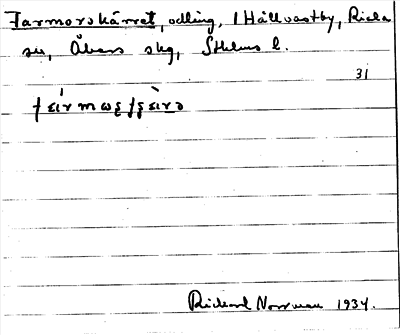 Farmorskärret, odling, 1 Hållvastby, Riala
sn, Åkers skg, Sthlms l.
31
Rickard Norrman 1934.